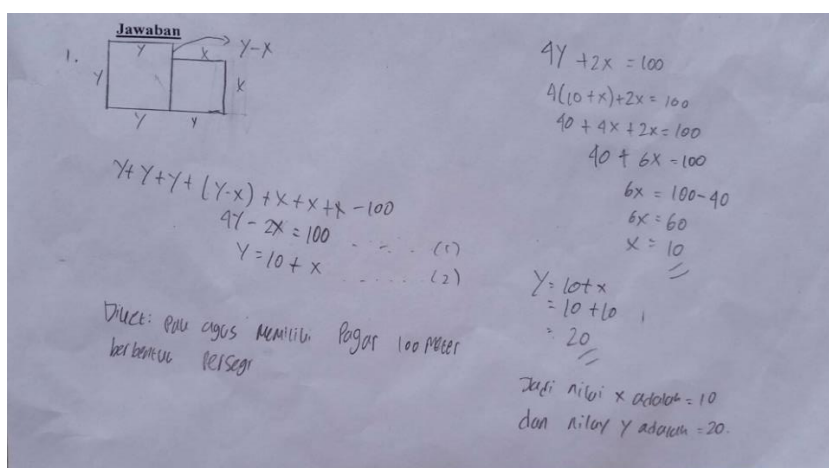 Jawaban
1.
Y x Y-x
Y x
Y y
Y+Y+Y+(Y-x)+x+x+x-100
4Y-2x=100 ..... (1)
Y=10+x ..... (2)
Diket: pak agus memiliki Pagar 100 meter
berbentuk Persegi
4Y+2x=100
4(10+x)+2x=100
40+4x+2x=100
40+6x=100
6x=100-40
6x=60
x=10
Y=10+x
=10+10
=20
Jadi nilai x adalah=10
dan nilay y adalah=20.